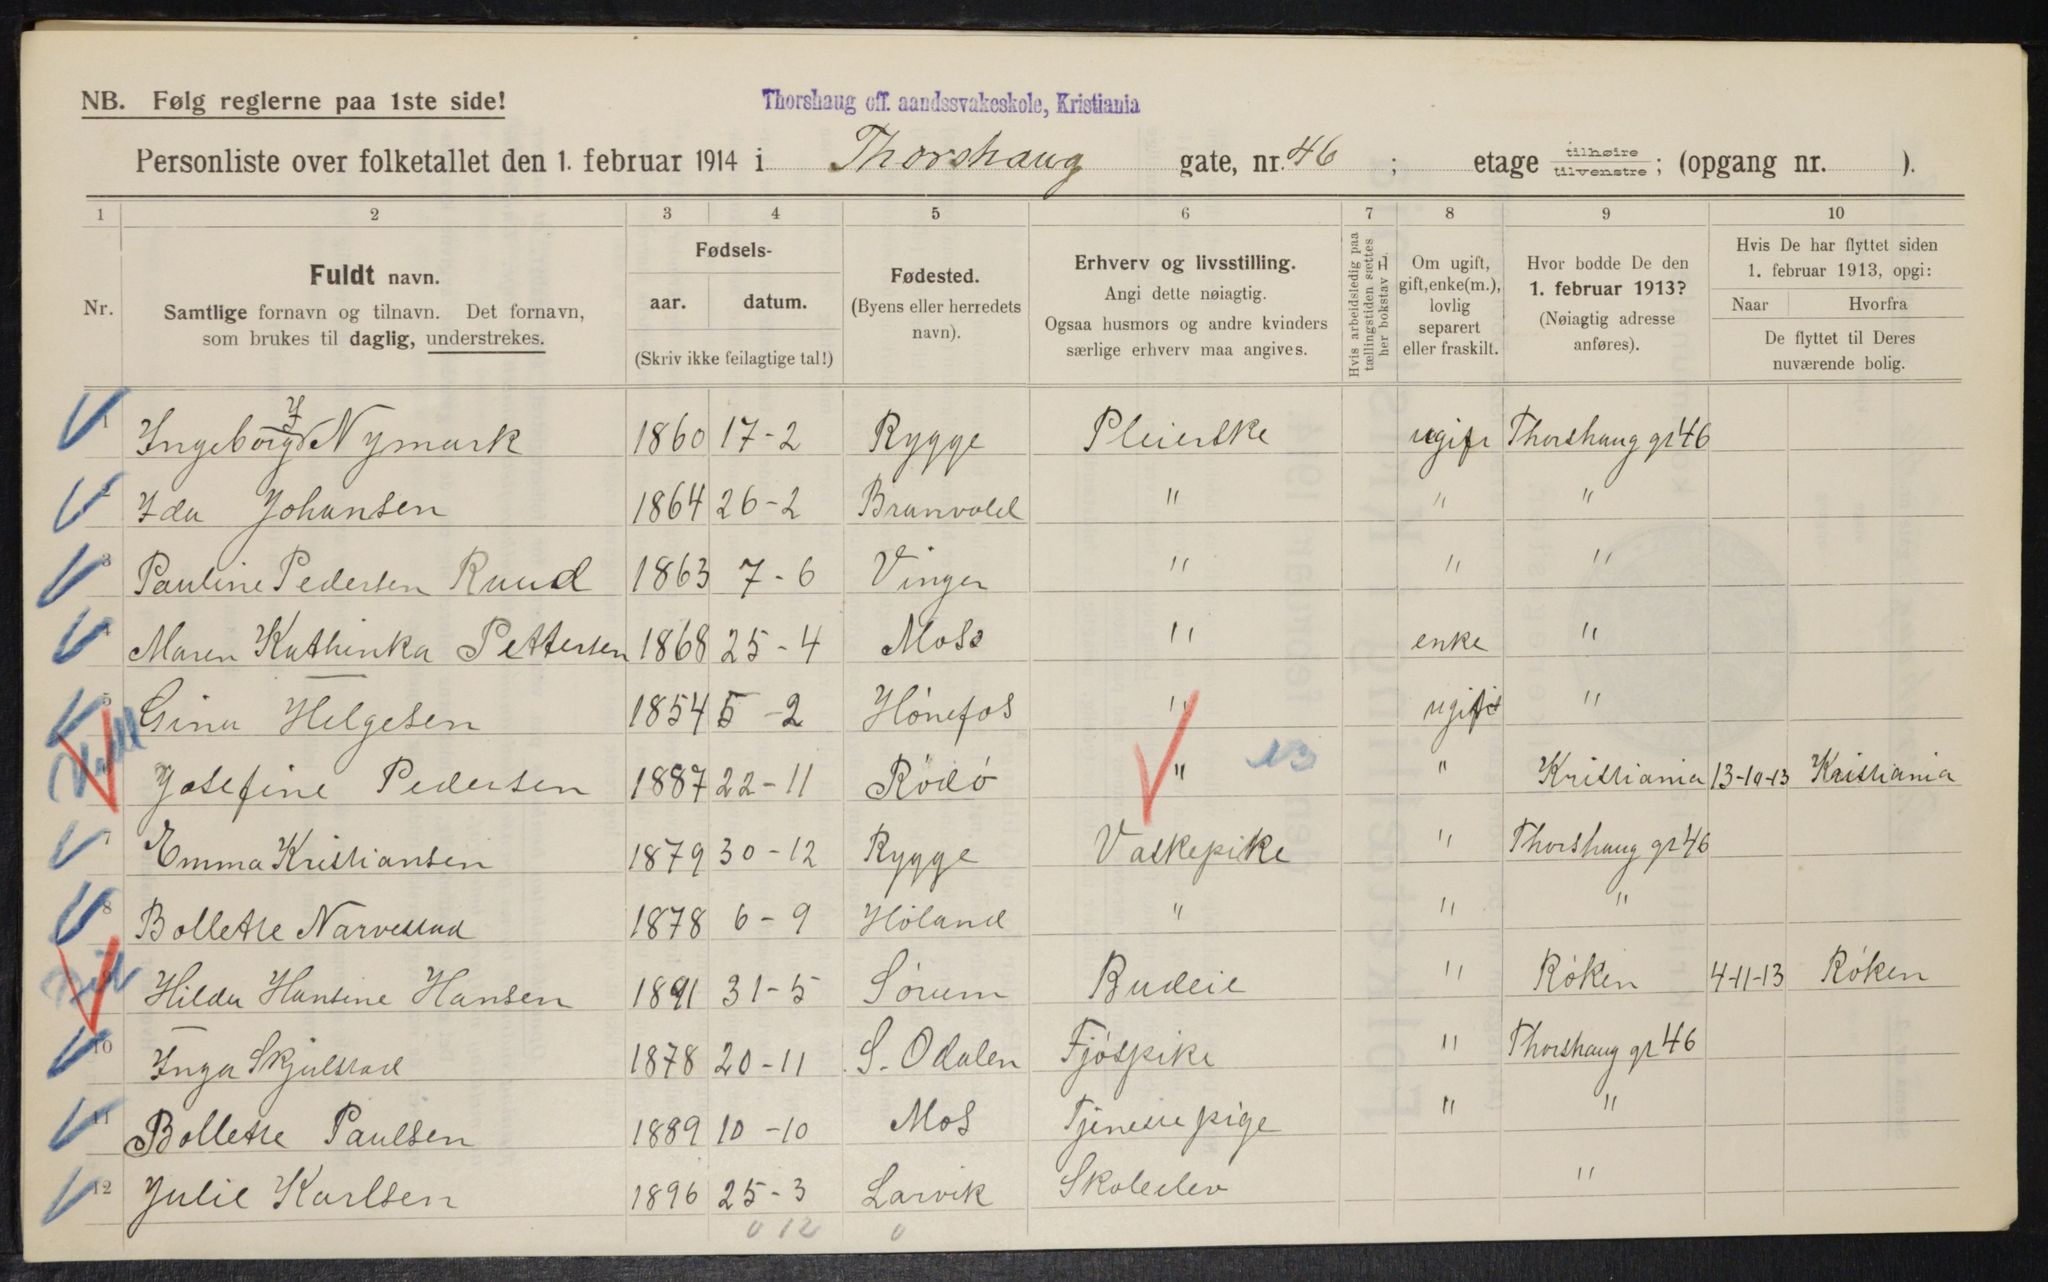 NB. Følg reglerne paa 1ste side!
Thorshaug off. aandssvakeskole, Kristiania
Personliste over folketallet den 1. februar 1914 i Thorshaug gate, nr. 46 ; etage tilhøire tilvenstre ; (opgang nr. ).
1 2 3 4 5 6 7 8 9 10
Nr.
Fuldt navn.
Samtlige fornavn og tilnavn. Det fornavn,
som brukes til daglig, understrekes.
Fødsels-
aar. datum.
(Skriv ikke feilagtige tal!)
Fødested.
(Byens eller herredets
navn).
Erhverv og livsstilling.
Angi dette nøiagtig.
Ogsaa husmors og andre kvinders
særlige erhverv maa angives.
Hvis arbeidsledig paa
tællingstiden sættes
her bokstav L.
Om ugift,
gift, enke(m.),
lovlig
separert
eller fraskilt.
Hvor bodde De den
1. februar 1913?
(Nøiagtig adresse
anføres).
Hvis De har flyttet siden
1. februar 1913, opgi:
Naar Hvorfra
De flyttet til Deres
nuværende bolig.
1 Ingeborg J Nymark 1860 17-2 Rygge Pleierske ugift Thorshaug gt 46
2 Ida Johansen 1864 26-2 Branvold " " "
3 Pauline Pedersen Ruud 1863 7-6 Vinger " " "
4 Maren Kathinka Pettersen 1868 25-4 Moss " enke "
5 Gina Helgesen 1854 5-2 Hönefos " ugift "
6 Josefine Pedersen 1887 22-11 Rödö " 13 " Kristiania 13-10-13 Kristiania
7 Emma Kristiansen 1879 30-12 Rygge Vaskepike " Thorshaug gt 46
8 Bollette Narvestad 1878 6-9 Höland " " "
9 Hilda Hansine Hansen 1891 31-5 Sörum Budeie " Röken 4-11-13 Röken
10 Inga Skjulstad 1878 20-11 S. Odalen Fjöspike " Thorshaug gt 46
11 Bollette Paulsen 1889 10-10 Mos Tjenestepige " "
12 Julie Karlsen 1896 25-3 Larvik Skoleelev "
0 12 0